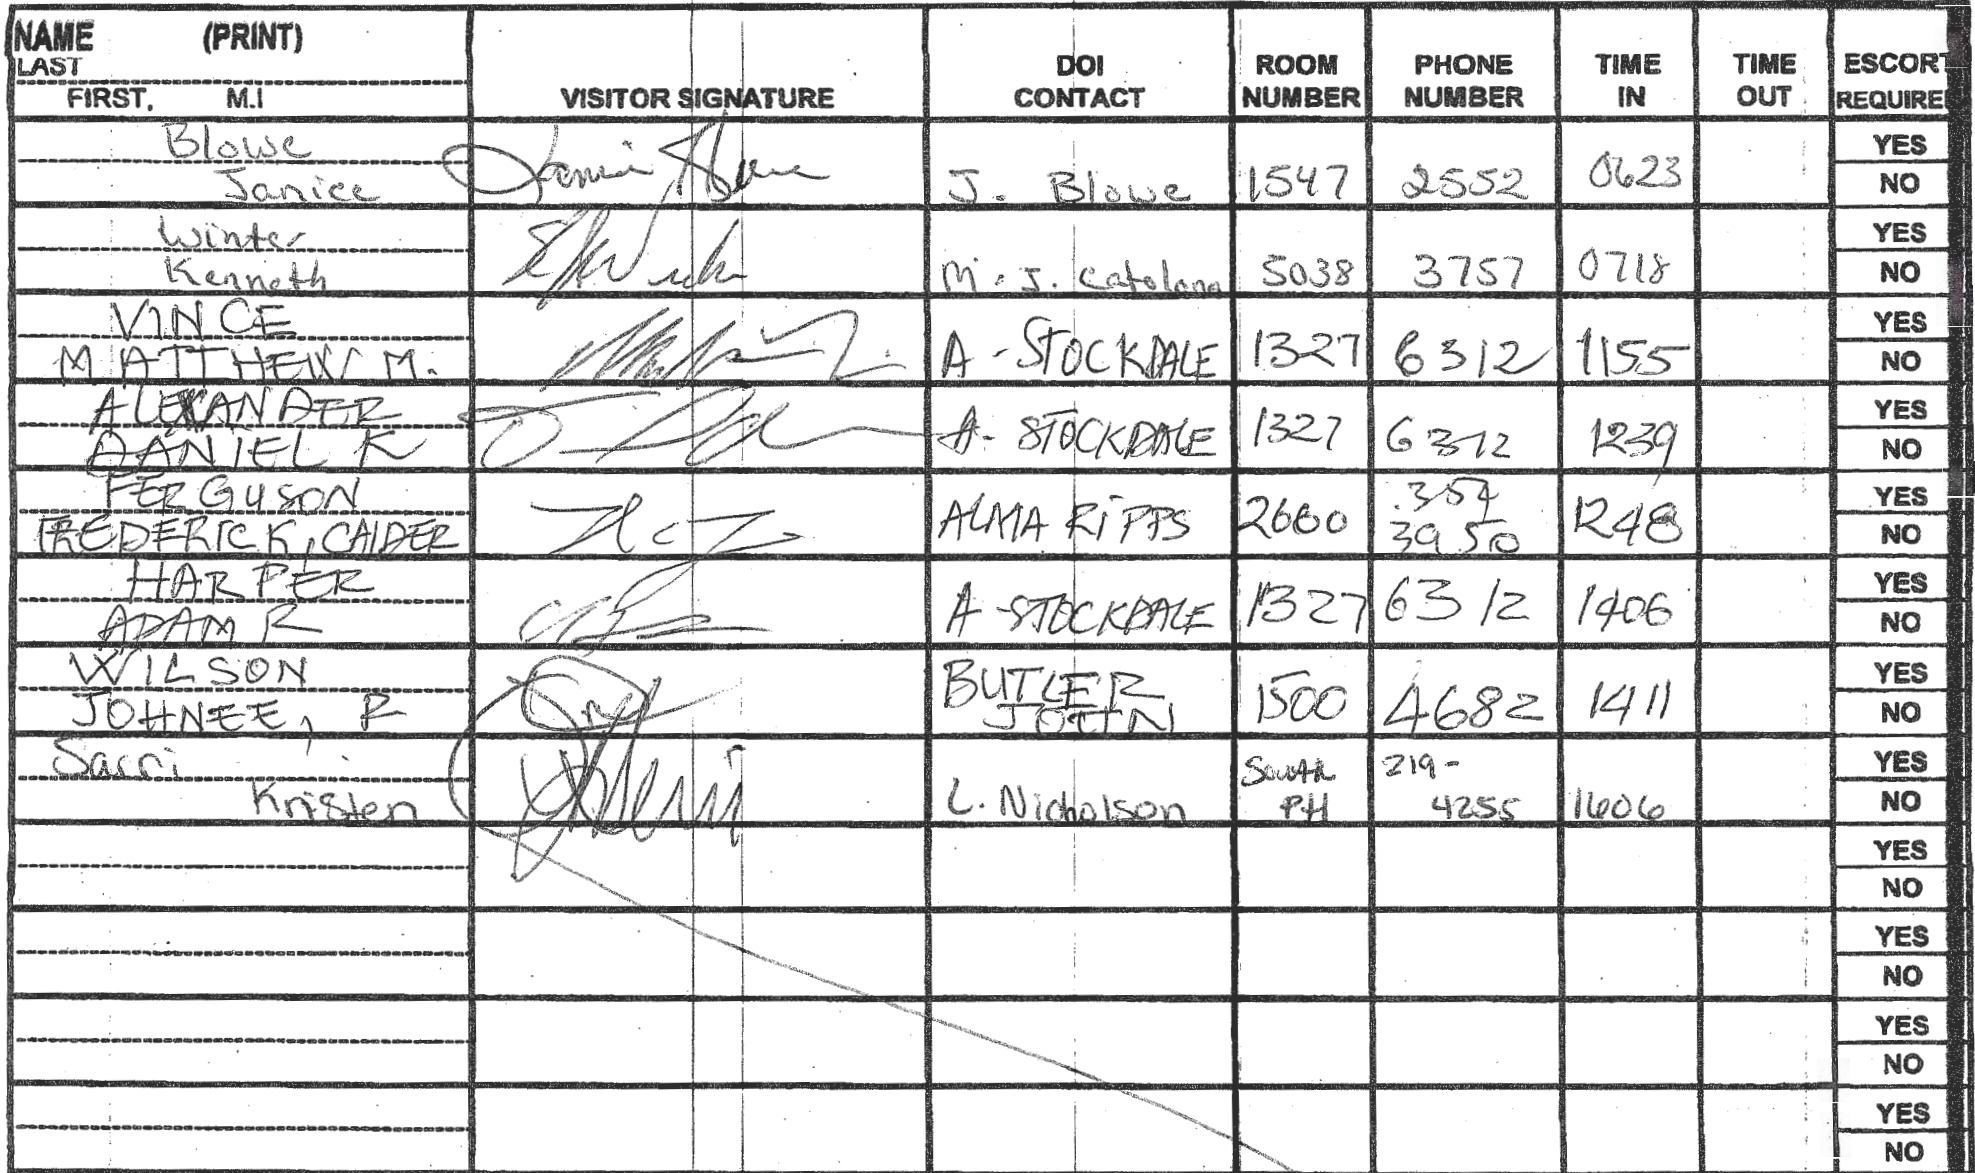 NAME (PRINT)
LAST
FIRST, M.I
VISITOR SIGNATURE
DOI CONTACT
ROOM NUMBER
PHONE NUMBER
TIME IN
TIME OUT
ESCORT REQUIRE
Blowe
Janice
J. Blowe 1547 2552 0623
YES
NO
Winter
Kenneth
M. J. Catalano 5038 3757 0718
YES
NO
VINCE
MATTHEW M.
A - STOCKDALE 1327 6312 1155
YES
NO
ALEXANDER
DANIEL K
A - STOCKDALE 1327 6312 1239
YES
NO
FERGUSON
FREDERICK, CALDER
ALMA RIPPS 2660 354 3950 1248
YES
NO
HARPER
ADAM R
A - STOCKDALE 1327 6312 1406
YES
NO
WILSON
JOHNEE, R
BUTLER JOHN 1500 4682 1411
YES
NO
Sarri
Kristen
L. Nicholson South PH 219-4255 1606
YES
NO
YES
NO
YES
NO
YES
NO
YES
NO